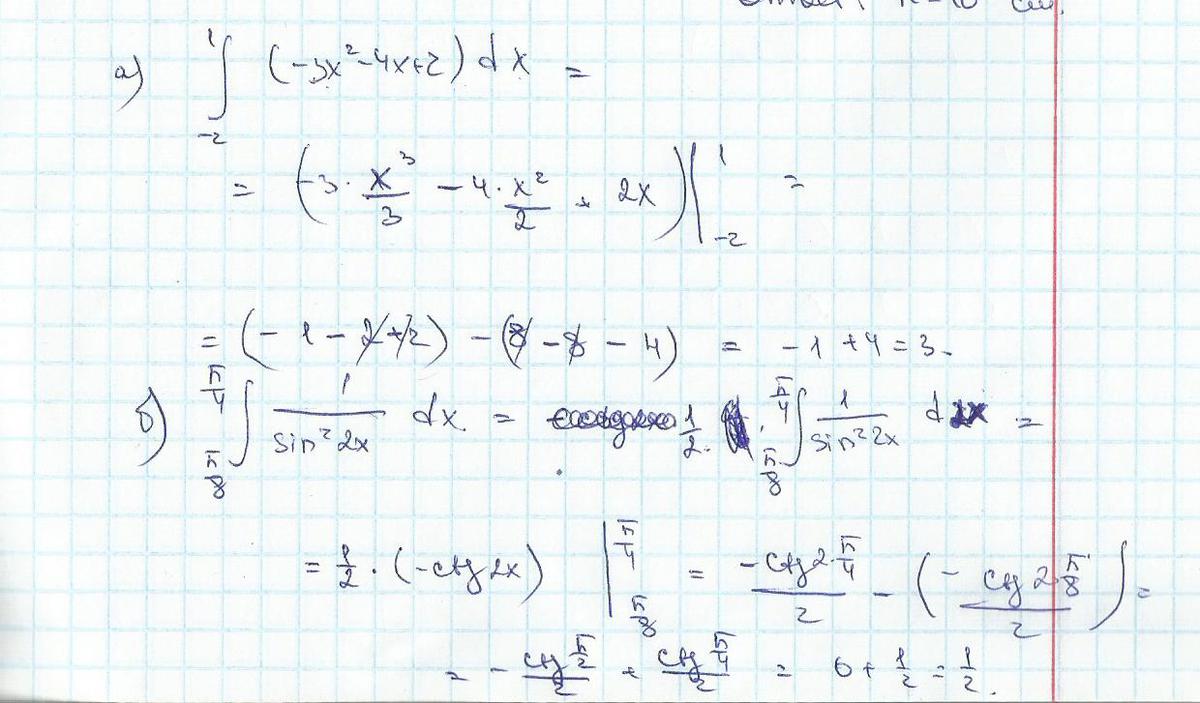 Ответ: R=10 см.
а) ∫_{-2}^{1} (-3x²-4x+2) dx =
= (-3 · x³/3 - 4 · x²/2 + 2x) |_{-2}^{1} =
= (-1-2+2) - (8-8-4) = -1+4=3.
б) ∫_{π/8}^{π/4} 1/sin²2x dx = 1/2 · ∫_{π/8}^{π/4} 1/sin²2x d2x =
= 1/2 · (-ctg 2x) |_{π/8}^{π/4} = -ctg 2·π/4 / 2 - (- ctg 2·π/8 / 2) =
= - ctg π/2 / 2 + ctg π/4 / 2 = 0 + 1/2 = 1/2.